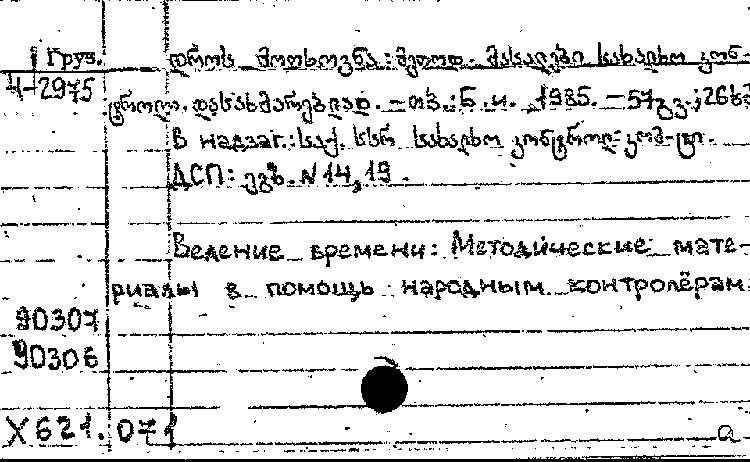 Груз. დროის მოთხოვნა : მეთოდ. მასალები სახალხო კონ-
4-2975 ტროლ. დასახმარებლად. – თბ. : ბ. ი. 1985. – 57გვ.; 26სმ
В надзаг.: საქ. სსრ სახალხო კონტროლ. კომ-ტი.
ДСП: ეგზ. N 14, 19.
Веление времени: Методические мате-
риалы в помощь народным контролёрам
90307
90306
X621.071 a